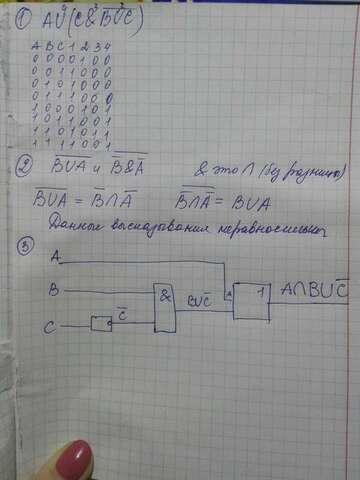 1) A∪(C&\overline{B∪C})
4 3 2 1
A B C 1 2 3 4
0 0 0 0 1 0 0
0 0 1 1 0 0 0
0 1 0 1 0 0 0
0 1 1 1 0 0 0
1 0 0 0 1 0 1
1 0 1 1 0 0 1
1 1 0 1 0 1 1
1 1 1 1 0 0 1
2) \overline{B∪A} и \overline{B&\overline{A}} & это ∩ (без разницы)
\overline{B∪A} = \overline{B}∩\overline{A} \overline{\overline{B}∩\overline{A}} = B∪A
Данные высказывания неравносильны
3)
A
B & B∪\overline{C} 1 A∩B∪\overline{C}
C \overline{C}